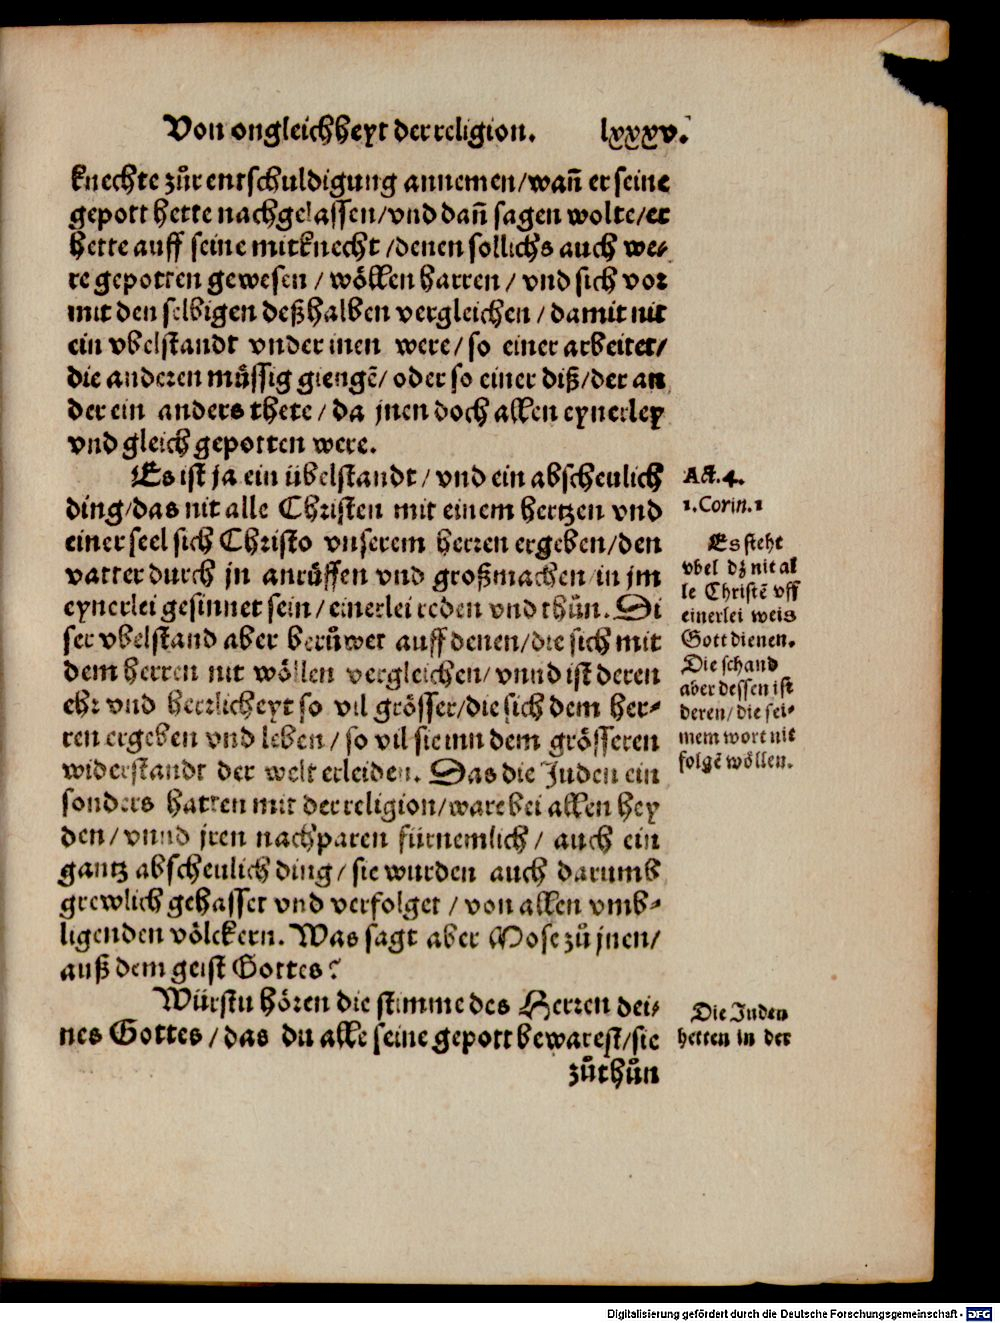 Von ongleichheyt der religion. lxxxv.
knechte zůr entschuldigung annemen/wañ er seine
gepott hette nachgelassen/vnd dañ sagen wolte/er
hette auff seine mitknecht/denen sollichs auch we⸗
re gepotten gewesen/wöllen harren/vnd sich vor
mit den selbigen deßhalben vergleichen/damit nit
ein vbelstandt vnder inen were/so einer arbeitet/
die anderen müssig giengẽ/oder so einer diß/der an
der ein anders thete/da jnen doch allen eynerley
vnd gleich gepotten were.
Es ist ja ein übelstandt/vnd ein abscheulich
ding/das nit alle Christen mit einem hertzen vnd
einer seel sich Christo vnserem herren ergeben/den
vatter durch jn anrüffen vnd großmachen/in jm
eynerlei gesinnet sein/einerlei reden vnd thůn. Di
ser vbelstand aber berůwet auff denen/die sich mit
dem herren nit wöllen vergleichen/vnnd ist deren
ehr vnd herrlicheyt so vil grösser/die sich dem her⸗
ren ergeben vnd leben/so vil sie inn dem grösseren
widerstandt der welt erleiden. Das die Juden ein
sonders hatten mit der religion/ware bei allen hey
den/vnnd jren nachparen fürnemlich/auch ein
gantz abscheulich ding/sie wurden auch darumb
grewlich gehasset vnd verfolget/von allen vmb⸗
ligenden völckern. Was sagt aber Mose zů jnen/
auß dem geist Gottes?
Würstu hören die stimme des Herren dei⸗
nes Gottes/das du alle seine gepott bewarest/sie
zůthůn
Act.4.
1.Corin.1
Es steht
vbel dz nit al
le Christẽ vff
einerlei weis
Gott dienen.
Die schand
aber dessen ist
deren/die sei⸗
mem wort nit
folgẽ wöllen.
Die Juden
hetten in der
Digitalisierung gefördert durch die Deutsche Forschungsgemeinschaft - DFG